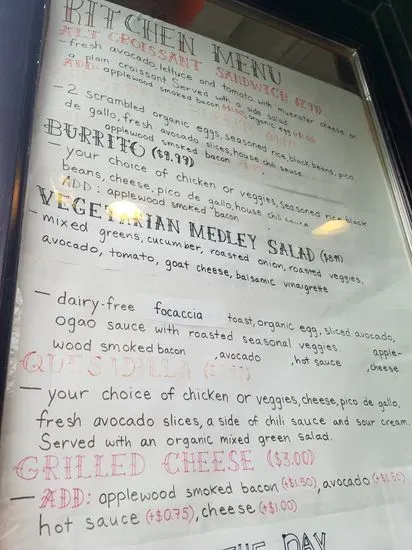 KITCHEN MENU
ALT CROISSANT SANDWICH
-fresh avocado, lettuce and tomato with muenster cheese on
a plain croissant. Served with a side salad
ADD: applewood smoked bacon (+$1.50), organic egg
-2 scrambled organic eggs, seasoned rice, black beans, pico
de gallo, fresh avocado slices, house chili sauce
applewood smoked bacon
BURRITO ($9.99)
- your choice of chicken or veggies, seasoned rice, black
beans, cheese, pico de gallo, house chili sauce
ADD: applewood smoked bacon
VEGETARIAN MEDLEY SALAD
- mixed greens, cucumber, roasted onion, roasted veggies,
avocado, tomato, goat cheese, balsamic vinaigrette
- dairy-free focaccia toast, organic egg, sliced avocado,
ogao sauce with roasted seasonal veggies. apple-
wood smoked bacon , avocado , hot sauce , cheese
QUESADILLA
- your choice of chicken or veggies, cheese, pico de gallo,
fresh avocado slices, a side of chili sauce and sour cream.
Served with an organic mixed green salad.
GRILLED CHEESE ($3.00)
- ADD: applewood smoked bacon (+$1.50), avocado (+$1.50)
hot sauce (+$0.75), cheese (+$1.00)
THE DAY